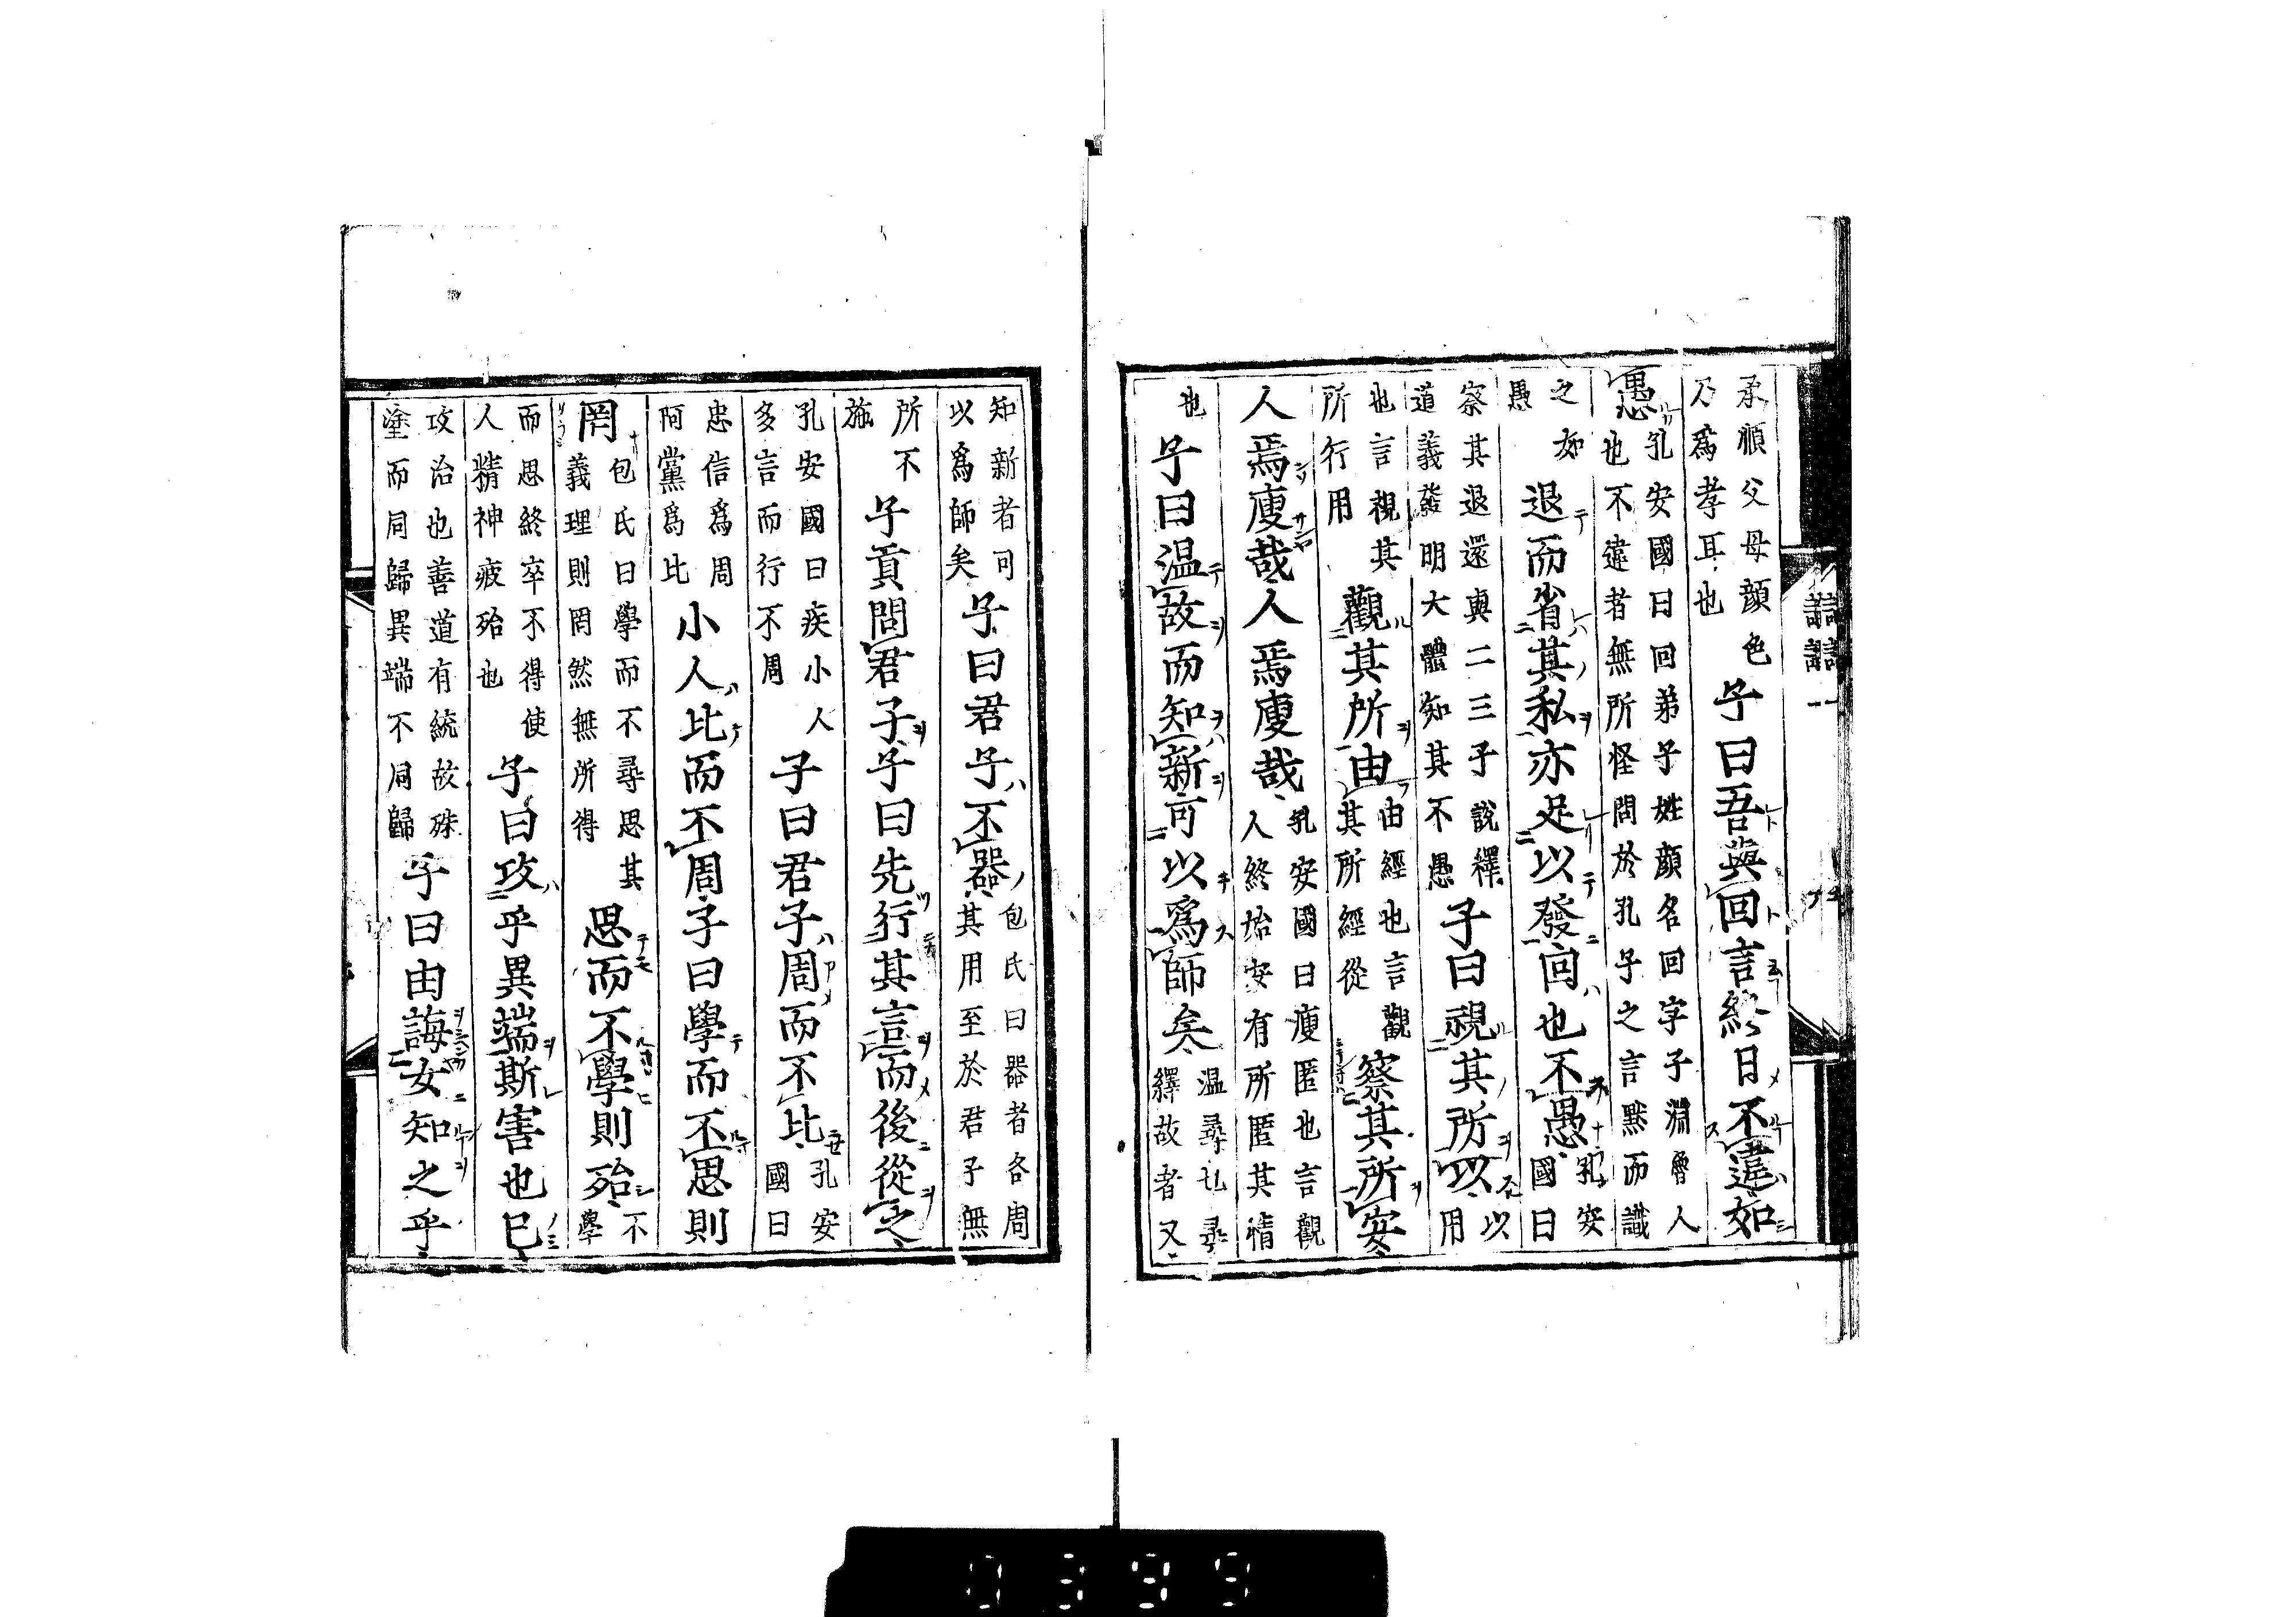 承順父母顔色
乃爲孝耳也
子曰吾與回言終日不違如
愚
孔安國曰回弟子姓顔名回字子淵魯人
也不違者無所怪問於孔子之言黙而識
之如
愚
退而省其私亦足以發回也不愚
孔安
國曰
察其退還與二三子說釋
道義發明大體知其不愚
子曰視其所以
以
用
也言視其
所行用
觀其所由
由經也言觀
其所經從
察其所安
人焉廋哉人焉廋哉
孔安國曰廋匿也言觀
人終始安有所匿其情
也
子曰温故而知新可以爲師矣
温尋也尋
繹故者又
知新者可
以爲師矣
子曰君子不器
包氏曰器者各周
其用至於君子無
所不
施
子貢問君子子曰先行其言而後從之
孔安國曰疾小人
多言而行不周
子曰君子周而不比
孔安
國曰
忠信爲周
阿黨爲比
小人比而不周子曰學而不思則
罔
包氏曰學而不尋思其
義理則罔然無所得
思而不學則殆
不
學
而思終卒不得使
人精神疲殆也
子曰攻乎異端斯害也已
攻治也善道有統故殊
塗而同歸異端不同歸
子曰由誨女知之乎
0399